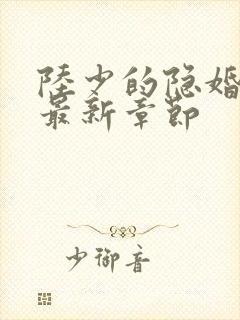 陸少的隐婚
最新章節
少御音